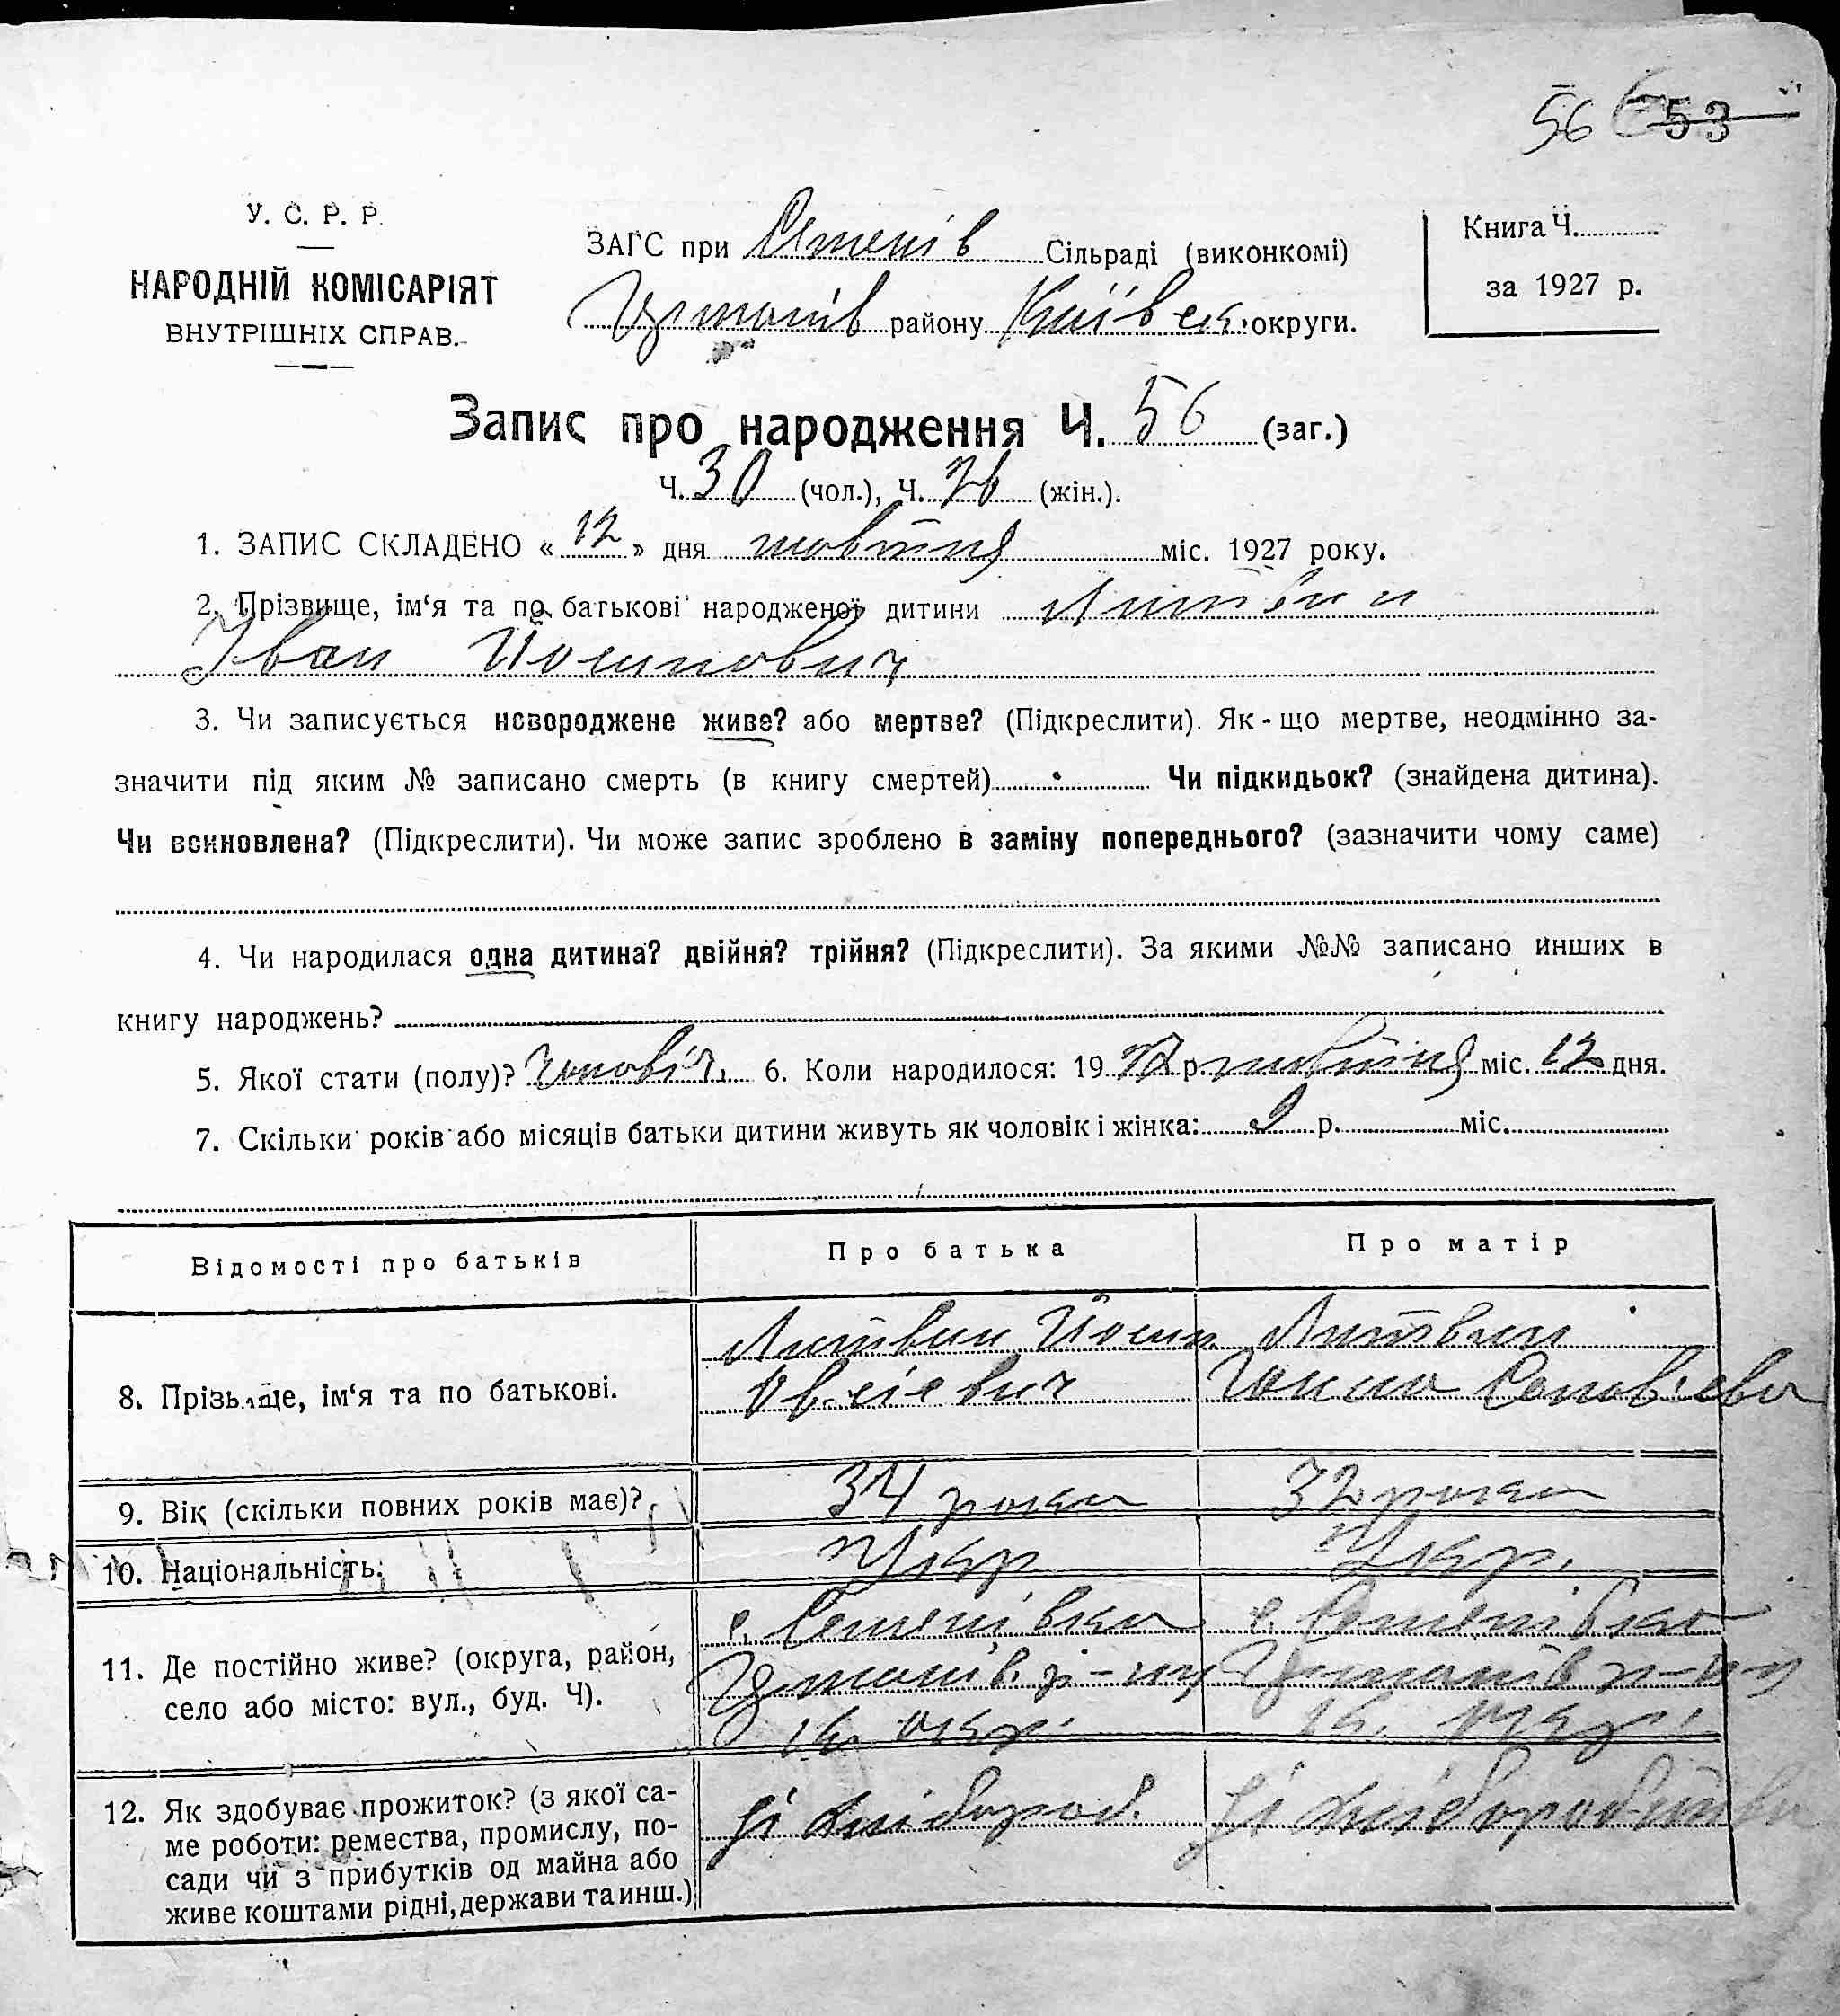 56 53
У. С. Р. Р.
НАРОДНІЙ КОМІСАРІЯТ
ВНУТРІШНІХ СПРАВ.
ЗАГС при Семенів Сільраді (виконкомі)
району Київськ. округи.
Книга Ч.
за 1927 р.
Запис про народження Ч. 56 (заг.)
Ч. 30 (чол.), Ч. 26 (жін.).
1. ЗАПИС СКЛАДЕНО « 12 » дня жовтня міс. 1927 року.
2. Прізвище, ім‘я та по батькові народженої дитини Литвин
Іван Йосипович
3. Чи записується новороджене живе? або мертве? (Підкреслити). Як-що мертве, неодмінно за-
значити під яким № записано смерть (в книгу смертей) Чи підкидьок? (знайдена дитина).
Чи всиновлена? (Підкреслити). Чи може запис зроблено в заміну попереднього? (зазначити чому саме)
4. Чи народилася одна дитина? двійня? трійня? (Підкреслити). За якими №№ записано инших в
книгу народжень?
5. Якої стати (полу)? Чоловіч. 6. Коли народилося: 19 27 р. жовтня міс. 12 дня.
7. Скільки років або місяців батьки дитини живуть як чоловік і жінка: 9 р. міс.
Відомості про батьків
Про батька
Про матір
8. Прізвище, ім‘я та по батькові.
Литвин Йосип
Литвин
Ганна
9. Вік (скільки повних років має)?
34 роки
32 роки
10. Національність.
Укр.
Укр.
11. Де постійно живе? (округа, район,
село або місто: вул., буд. Ч).
с. Семенівка
р-ну
К. окр.
с. Семенівка
р-ну
К. окр.
12. Як здобуває прожиток? (з якої са-
ме роботи: ремества, промислу, по-
сади чи з прибутків од майна або
живе коштами рідні, держави та инш.)
Зі хлібороб.
Зі хліборобства